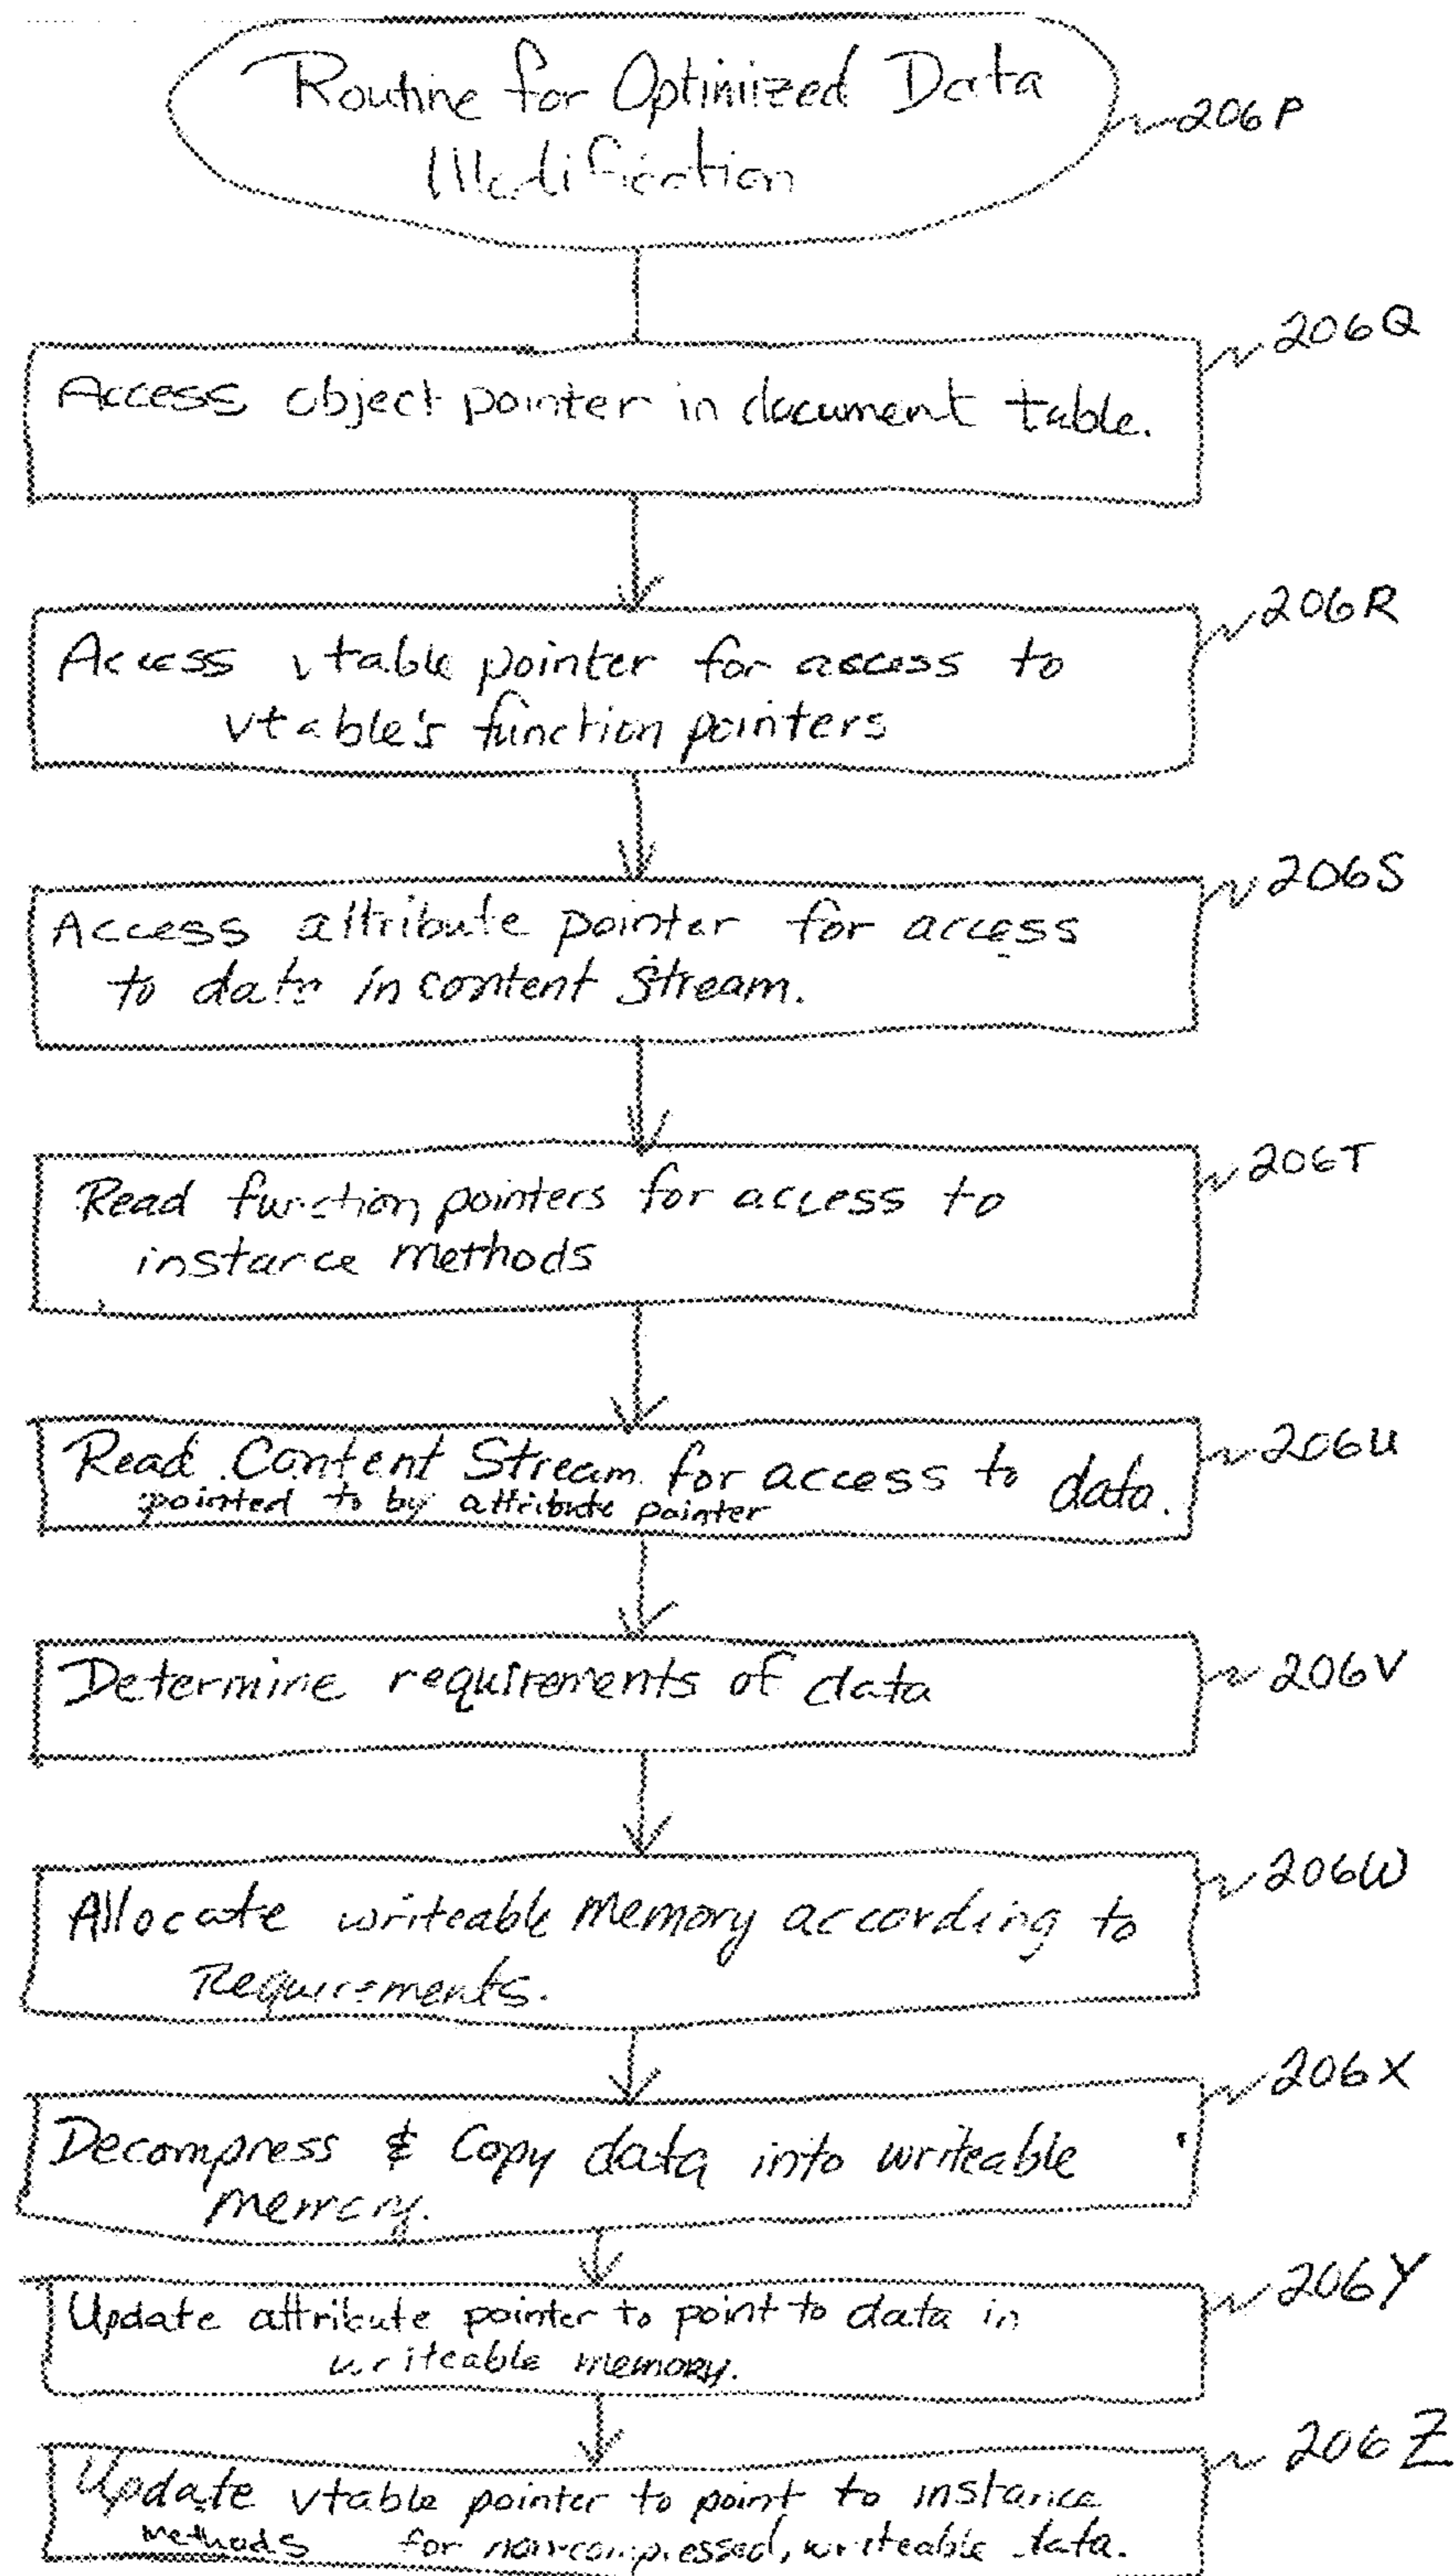 Routine for Optimized Data
Modification
206P
206Q
Access object pointer in document table.
206R
Access vtable pointer for access to
vtable's function pointers
206S
Access attribute pointer for access
to data in content Stream.
206T
Read function pointers for access to
instance methods
206U
Read Content Stream for access to data.
pointed to by attribute pointer
206V
Determine requirements of data
206W
Allocate writeable memory according to
Requirements.
206X
Decompress & Copy data into writeable
memory.
206Y
Update attribute pointer to point to data in
writeable memory.
206Z
Update vtable pointer to point to instance
methods for non-compressed, writeable data.